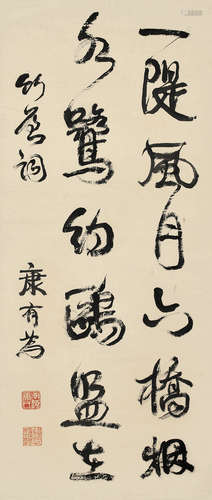 一隄風月六橋烟
水鷺約鷗盟在
竹屋詞
康有為